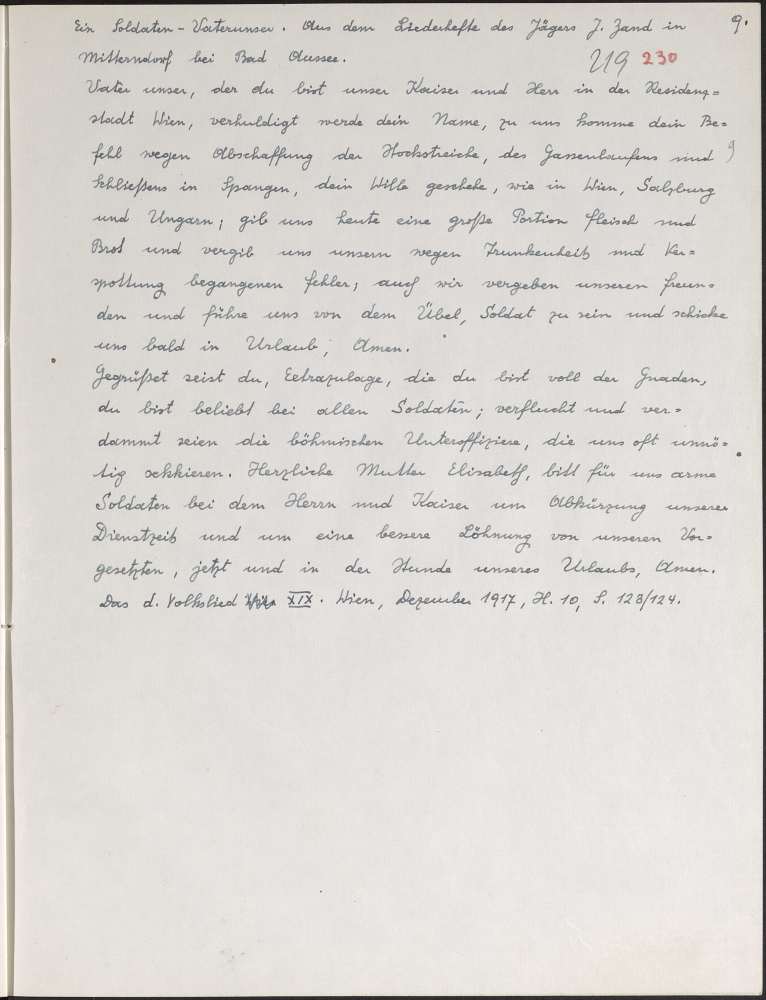 9.
Ein Soldaten-Vaterunser. Aus dem Liederhefte des Jägers J. Zand in
Mitterndorf bei Bad Aussee.
219 230
Vater unser, der du bist unser Kaiser und Herr in der Residenz=
stadt Wien, verhuldigt werde dein Name, zu uns komme dein Be=
fehl wegen Abschaffung der Stockstreiche, des Gassenlaufens und 9
Schließens in Spangen, dein Wille geschehe, wie in Wien, Salzburg
und Ungarn; gib uns heute eine große Portion Fleisch und
Brot und vergib uns unsern wegen Trunkenheit und Ver=
spottung begangenen Fehler; auch wir vergeben unseren Freun=
den und führe uns von dem Übel, Soldat zu sein und schicke
uns bald in Urlaub, Amen.
Gegrüßet seist du, Extrazulage, die du bist voll der Gnaden,
du bist beliebt bei allen Soldaten; verflucht und ver=
dammt seien die böhmischen Unteroffiziere, die uns oft unnö=
tig sekkieren. Herzliche Mutter Elisabeth, bitt für uns arme
Soldaten bei dem Herrn und Kaiser um Abkürzung unserer
Dienstzeit und um eine bessere Löhnung von unseren Vor=
gesetzten, jetzt und in der Stunde unseres Urlaubs, Amen.
Das d. Volkslied XIX. Wien, Dezember 1917, H. 10, S. 123/124.